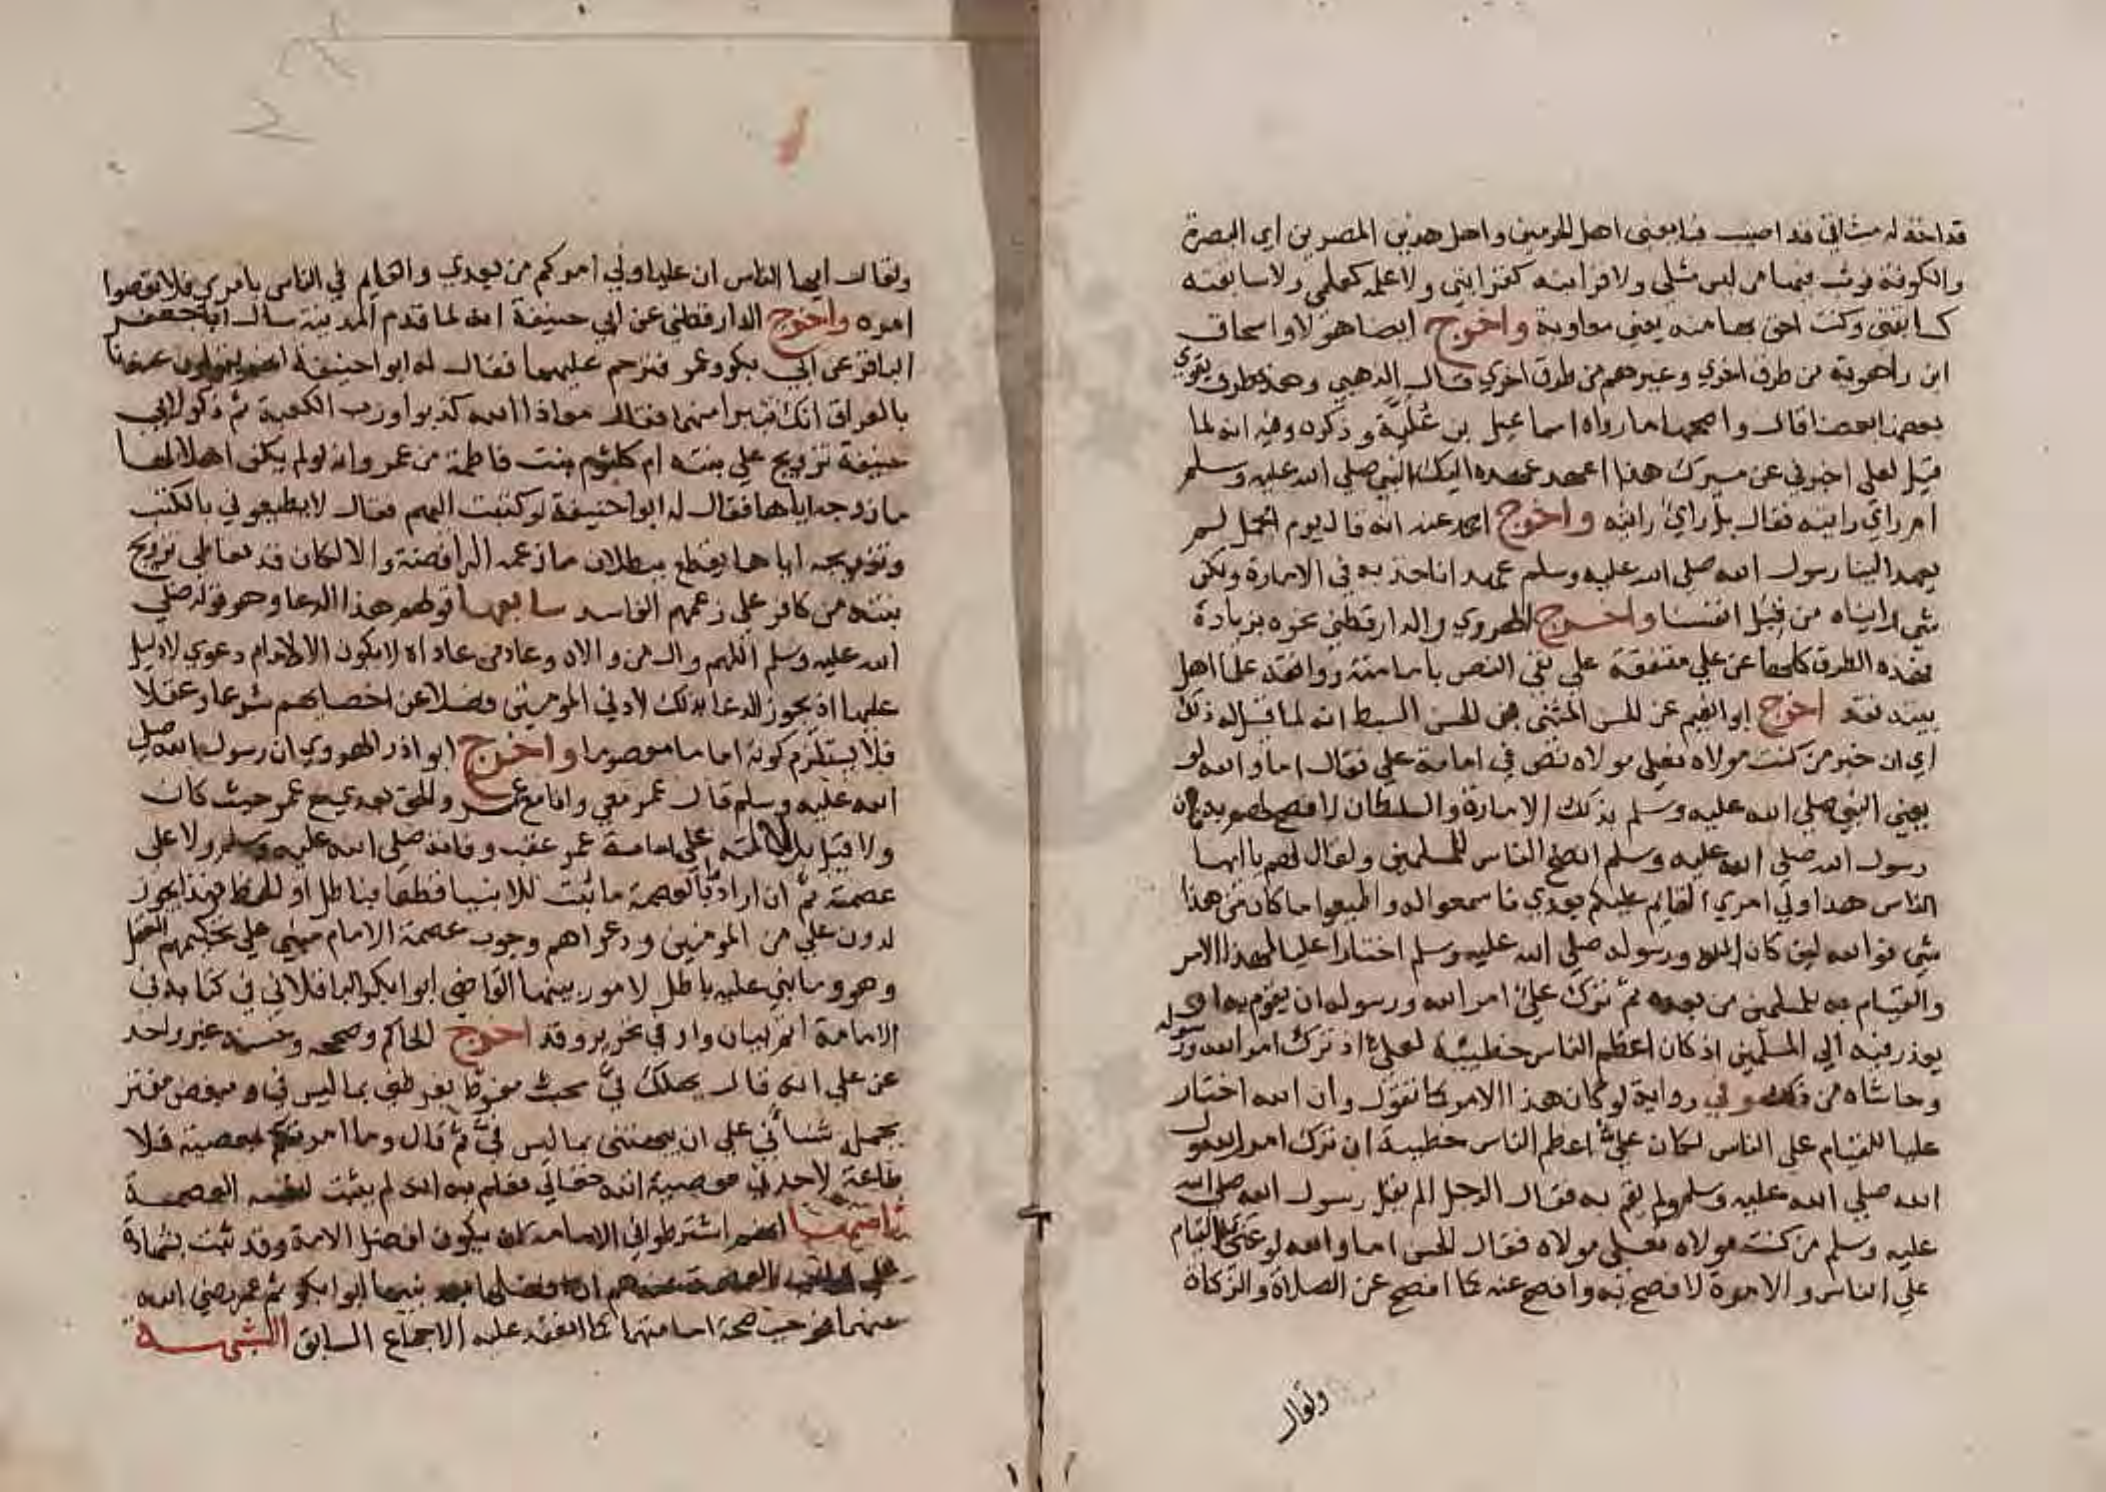 قد اخذ له ميثاقي قد اصيب فبايعني اهل الحرمين واهل هذين المصرين اي البصرة
والكوفة فوثب فيها من ليس مثلي ولا قرابته كقرابتي ولا علمه كعلمي ولا سابقته
كسابقتي وكنت احق بها منه يعني معاوية واخرج ايضا هولاء واسحاق
ابن راهوية من طرق اخري وغيرهم من طرق اخري قال الذهبي وهذه طرق يقوي
بعضها بعضا قال واصحها ما رواه اسماعيل بن عُلَيّة وذكره وفيه انه لما
قيل لعلي اخبرني عن مسيرك هذا اعهد عهده اليك النبي صلي الله عليه وسلم
ام راي رايته فقال بل راي رايته واخرج احمد عنه انه قال يوم الجمل لم
يعهد الينا رسول الله صلي الله عليه وسلم عهدا ناخذ به في الامارة ولكن
شي رايناه من قبل انفسنا واخرج الهروي والدارقطني نحوه بزيادة
فهذه الطرق كلها عن علي متفقة علي نفي النص بامامته ووافقه علما اهل
بيته فقد اخرج ابو انعيم عن الحسن المثني بن الحسن السبط انه لما قيل له ذلك
اي ان خبر من كنت مولاه فعلي مولاه نص في امامة علي فقال اما والله لو
يعني النبي صلي الله عليه وسلم بذلك الامارة والسلطان لافصح لهم به فان
رسول الله صلي الله عليه وسلم انصح الناس للمسلمين ولقال لهم يا ايها
الناس هذا ولي امري القايم عليكم بعدي فاسمعوا له واطيعوا ما كان من هذا
شي فوالله لين كان الله ورسوله صلي الله عليه وسلم اختارا عليا لهذا الامر
والقيام به للمسلمين من بعده ثم ترك علي امر الله ورسوله ان يقوم به او
يعذر فيه الي المسلمين اذ كان اعظم الناس خطيئة لعلي اذ ترك امر الله ورسوله
وحاشاه من ذلك وفي رواية لو كان هذا الامر كما تقول وان الله اختار
عليا للقيام علي الناس لكان علي اعظم الناس خطيية ان ترك امر رسول
الله صلي الله عليه وسلم ولم يقم به فقال الرجل الم يقل رسول الله صلي الله
عليه وسلم من كنت مولاه فعلي مولاه فقال الحسن اما والله لو عني به القيام
علي الناس والامرة لافصح به وافصح عنه كما افصح عن الصلاة والزكاة
ولقال
ولقال ايها الناس ان عليا ولي امركم من بعدي والقايم في الناس بامري فلا تعصوا
امره واخرج الدارقطني عن ابي حنيفة انه لما قدم المدينة سال ابا جعفر
الباقر عن ابي بكر وعمر فترحم عليهما فقال له ابو احنيفة انهم يقولون عندنا
بالعراق انك تتبرا منهما فقال معاذ الله كذبوا ورب الكعبة ثم ذكر لابي
حنيفة تزويج علي بنته ام كلثوم بنت فاطمة من عمر وانه لو لم يكن اهلا لها
ما زوجه اياها فقال له ابو احنيفة لو كتبت اليهم فقال لا يطيعوني بالكتب
وتزويجه اياها يقطع ببطلان ما زعمه الرافضة والا لكان قد تعاطي تزويج
بنته من كافر علي زعمهم الفاسد سابعها قولهم هذا الدعا وهو قوله صلي
الله عليه وسلم اللهم وال من والاه وعاد من عاداه لا يكون الا لامام دعوي لا دليل
عليها اذ يجوز الدعا بذلك لادني المومنين فضلا عن اخصايهم شرعا وعقلا
فلا يستلزم كونه اماما معصوما واخرج ابو اذر الهروي ان رسول الله صلي
الله عليه وسلم قال عمر معي وانا مع عمر والحق بعدي مع عمر حيث كان
ولا قيل بدلالته علي امامة عمر عقب وفاته صلي الله عليه وسلم ولا علي
عصمته ثم ان ارادوا بالعصمة ما ثبت للانبيا قطعا فباطل او الحفظ فهذا يجوز
لدون علي من المومنين ودعواهم وجوب عصمة الامام مبني علي تحكيمهم العقل
وهو وما بني عليه باطل لامور بينها القاضي ابو ابكر الباقلاني في كتابه في
الامامة اتم بيان واوفي تحرير وقد اخرج الحاكم وصححه وحسنه غير واحد
عن علي انه قال يهلك فيّ محب مفرط يقرظني بما ليس فيّ ومبغض مفتر
يحمله شناني علي ان يبهتني بما ليس فيّ ثم قال وما امرتكم بمعصية فلا
طاعة لاحد في معصية الله تعالي فعلم به انه لم يثبت لنفسه العصمة
ثامنها انهم اشترطوا في الامام ان يكون افضل الامة وقد ثبت بشهادة
علي ان افضلها بعد نبيها ابو ابكر ثم عمر رضي الله
عنهما فوجب صحة امامتهما كما انعقد عليه الاجماع السابق الشبهة